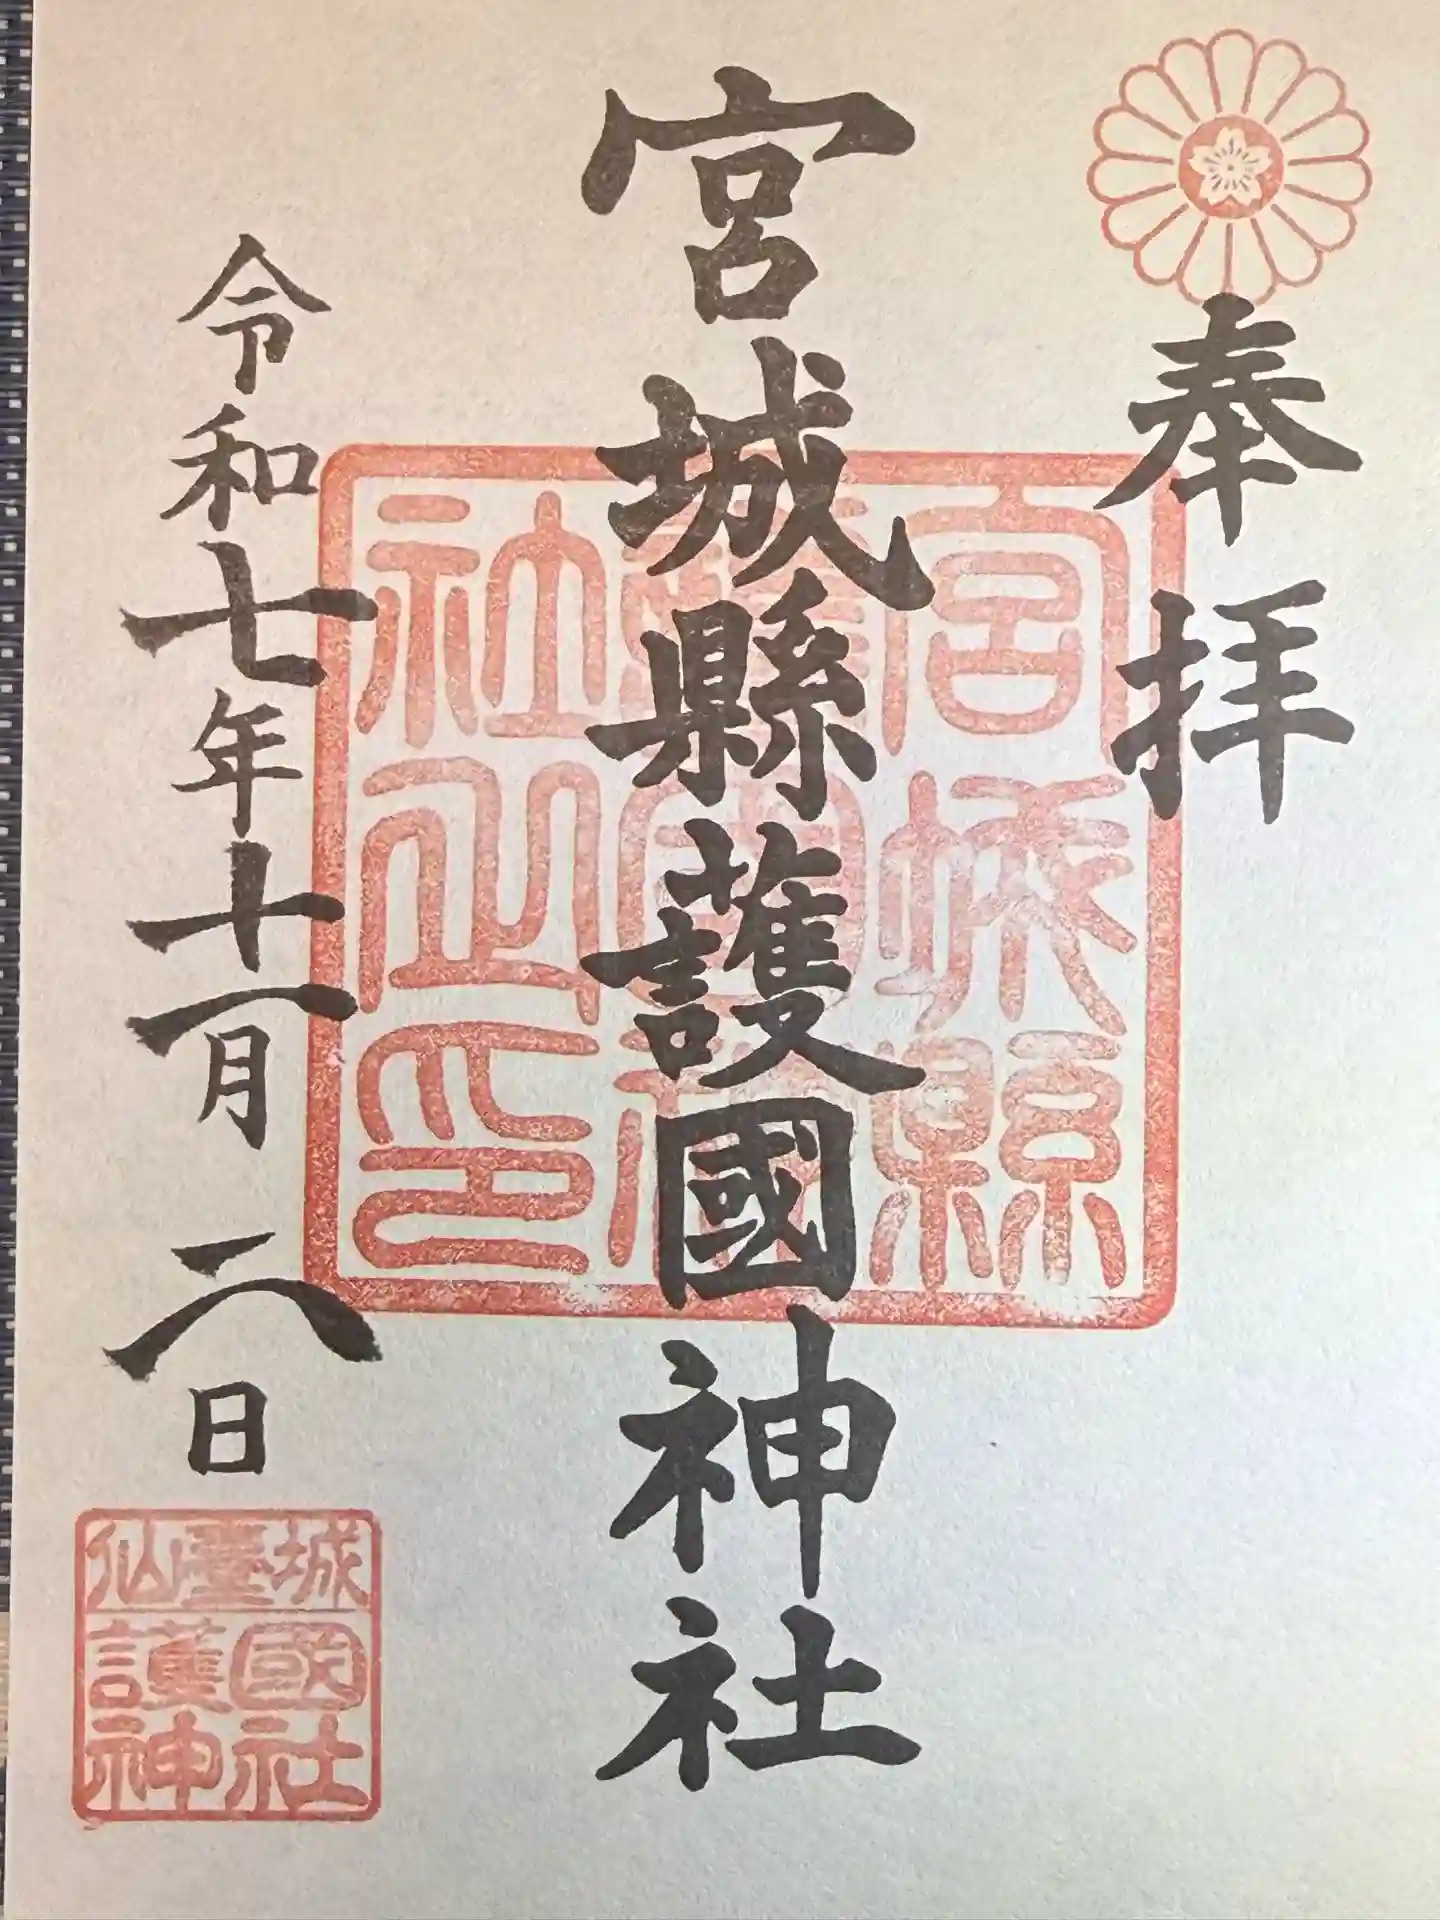 奉拝
宮城縣護國神社
令和七年十一月二八日
宮城縣
護國神
社之印
仙臺城
護國
神社